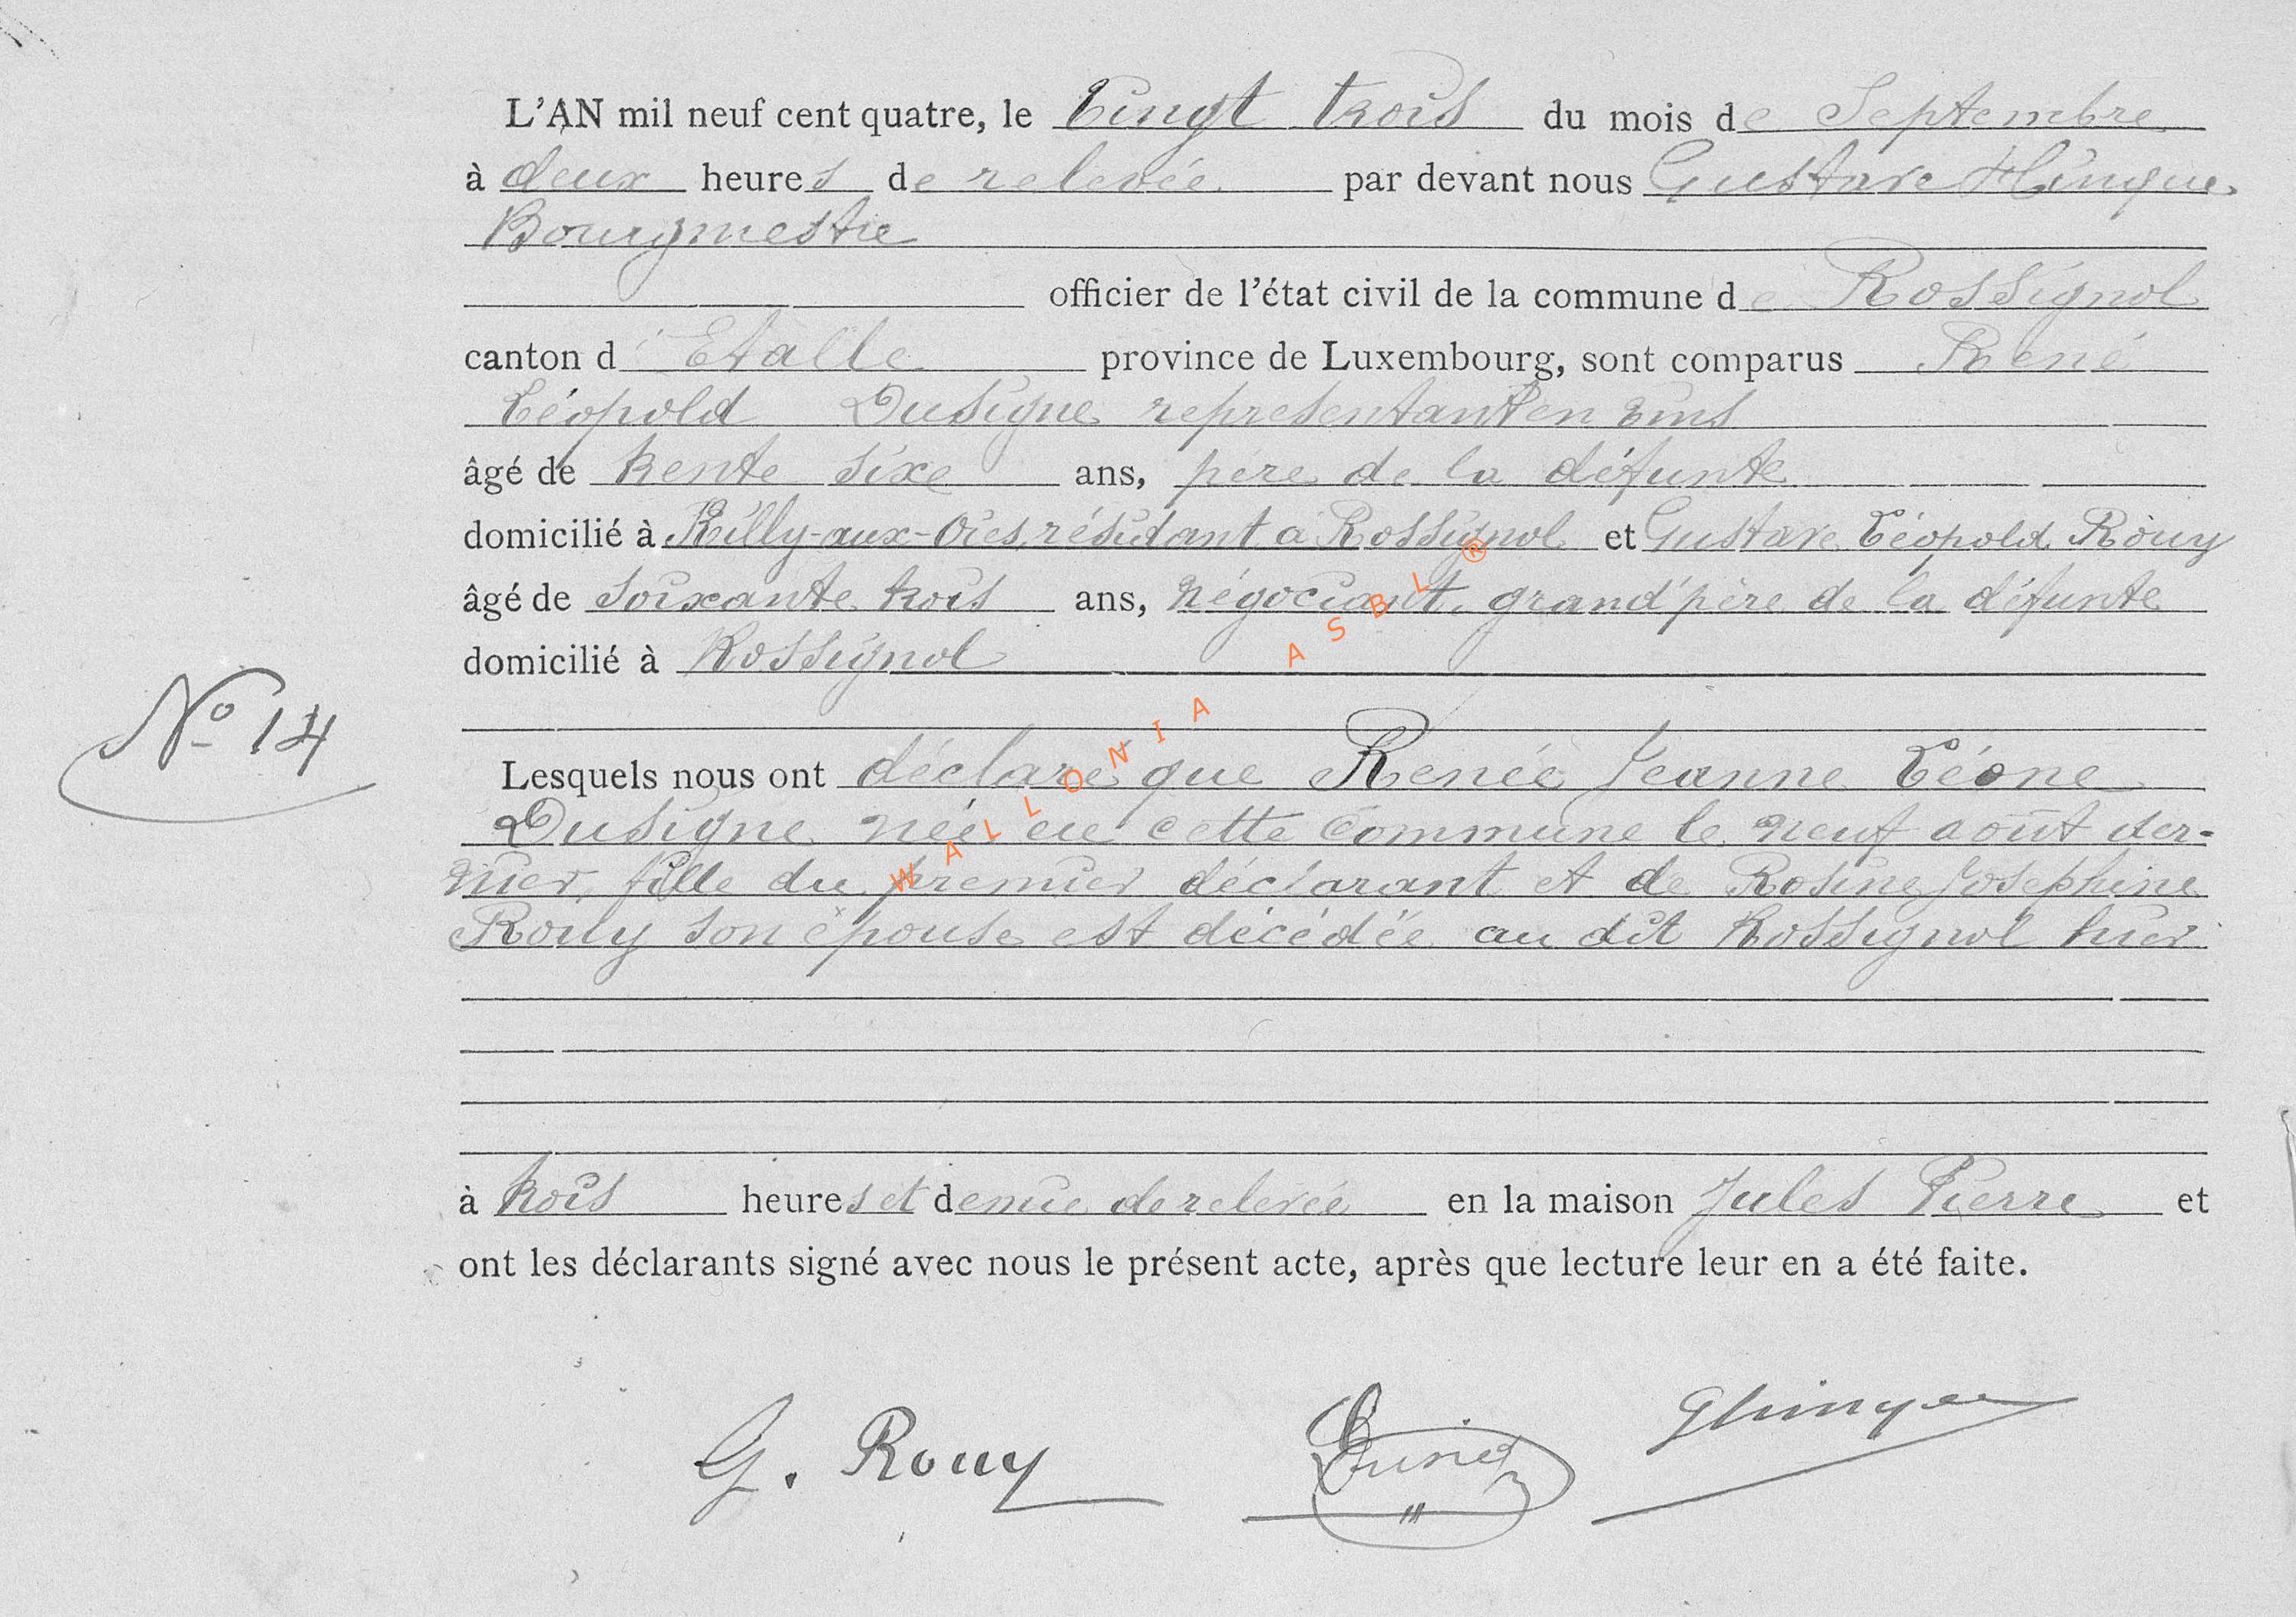 L'AN mil neuf cent quatre, le Vingt trois du mois de Septembre
à deux heures de relevée par devant nous Gustave Hinque
Bourgmestre
officier de l'état civil de la commune de Rossignol
canton d'Etalle province de Luxembourg, sont comparus René
Léopold Dusigne representant en vins
âgé de trente sixe ans, père de la défunte
domicilié à Rilly-aux-Oies, résidant à Rossignol et Gustave Léopold Rouy
âgé de soixante trois ans, négociant, grand'père de la défunte
domicilié à Rossignol
No 14
Lesquels nous ont déclaré que Renée Jeanne Léone
Dusigne née en cette commune le neuf août der-
nier, fille du premier déclarant et de Rosine Josephine
Rouy son épouse est décédée au dit Rossignol hier
à trois heures et demie de relevée en la maison Jules Pierre et
ont les déclarants signé avec nous le présent acte, après que lecture leur en a été faite.
G. Rouy GHinque
WALLONIA ASBL ®